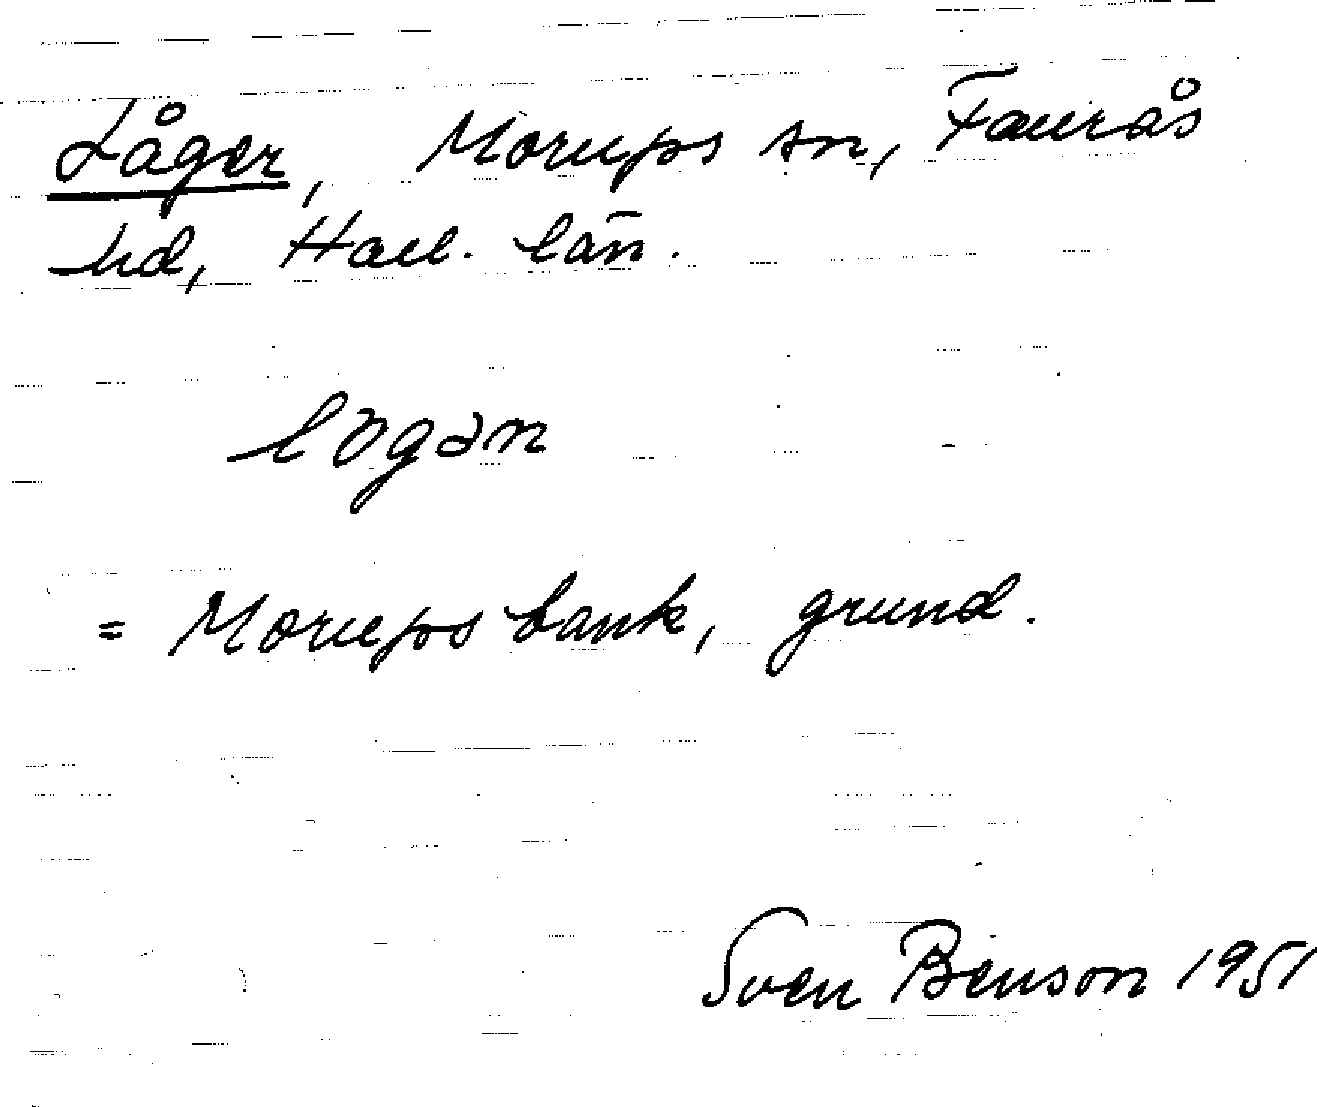 Låger, Morups sn, Faurås
hd, Hall. län.
logən
= Morups bank, grund.
Sven Benson 1951